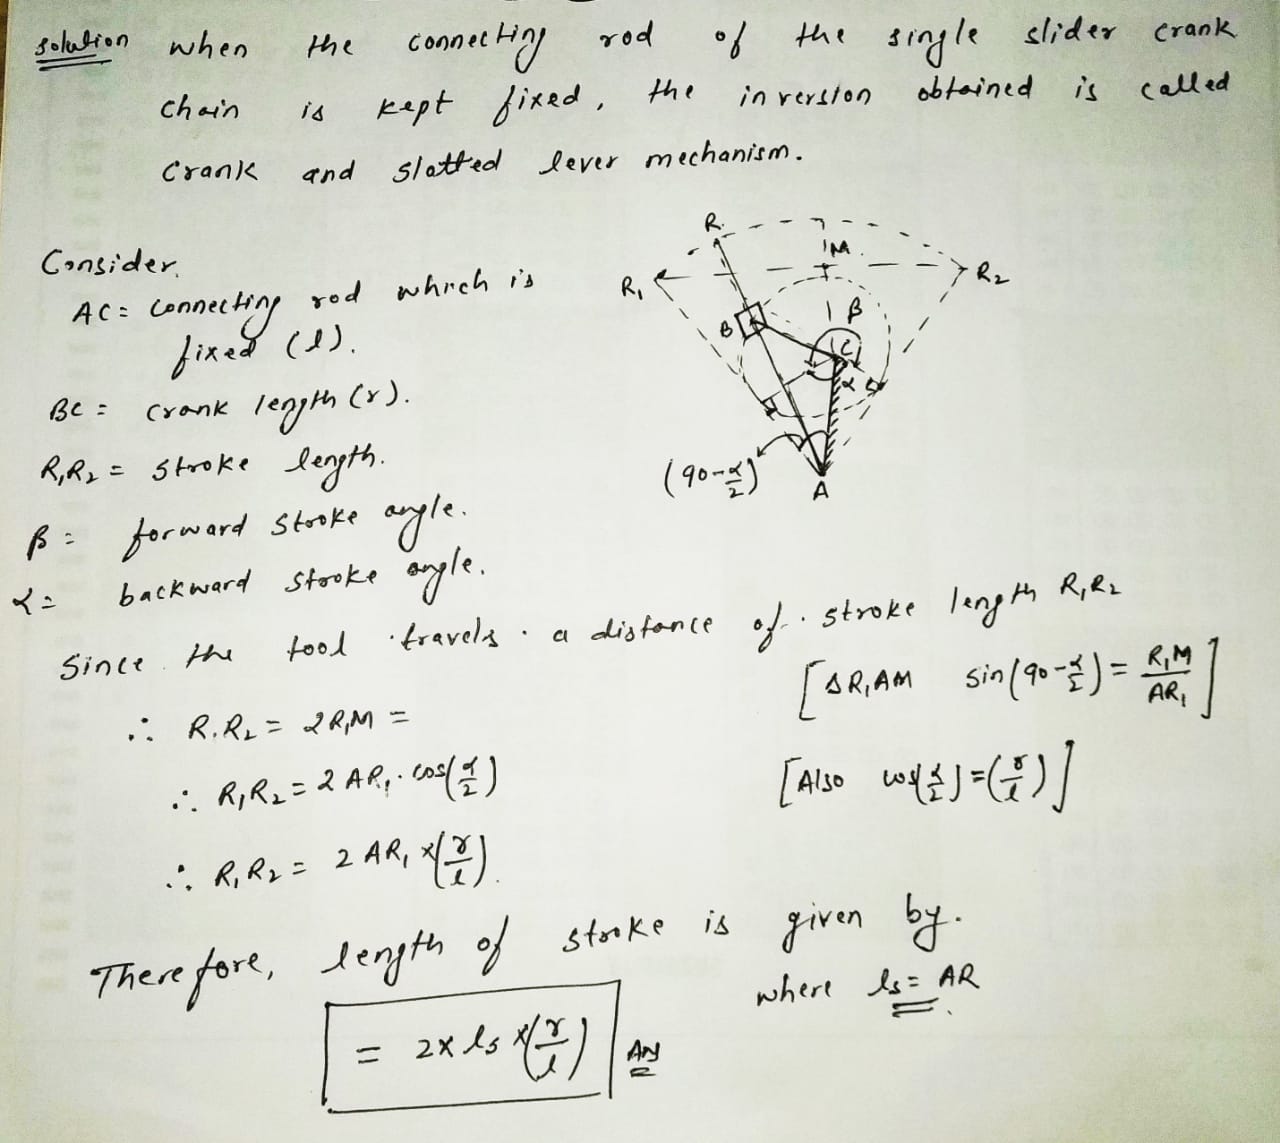 solution when the connecting rod of the single slider crank
chain is kept fixed, the inversion obtained is called
crank and slotted lever mechanism.
Consider.
AC = connecting rod which is
fixed (l).
BC = crank length (r).
R₁R₂ = stroke length.
β = forward stroke angle.
α = backward stroke angle.
R.
M
R₁
R₂
B
β
C
α
(90-α/2)
A
Since the tool travels a distance of stroke length R₁R₂
∴ R₁R₂ = 2R₁M = [ΔR₁AM sin(90-α/2) = R₁M/AR₁]
∴ R₁R₂ = 2 AR₁ . cos(α/2) [Also cos(α/2) = (r/l)]
∴ R₁R₂ = 2 AR₁ x (r/l).
Therefore, length of stroke is given by.
= 2 x ls x (r/l) Ans where ls = AR.